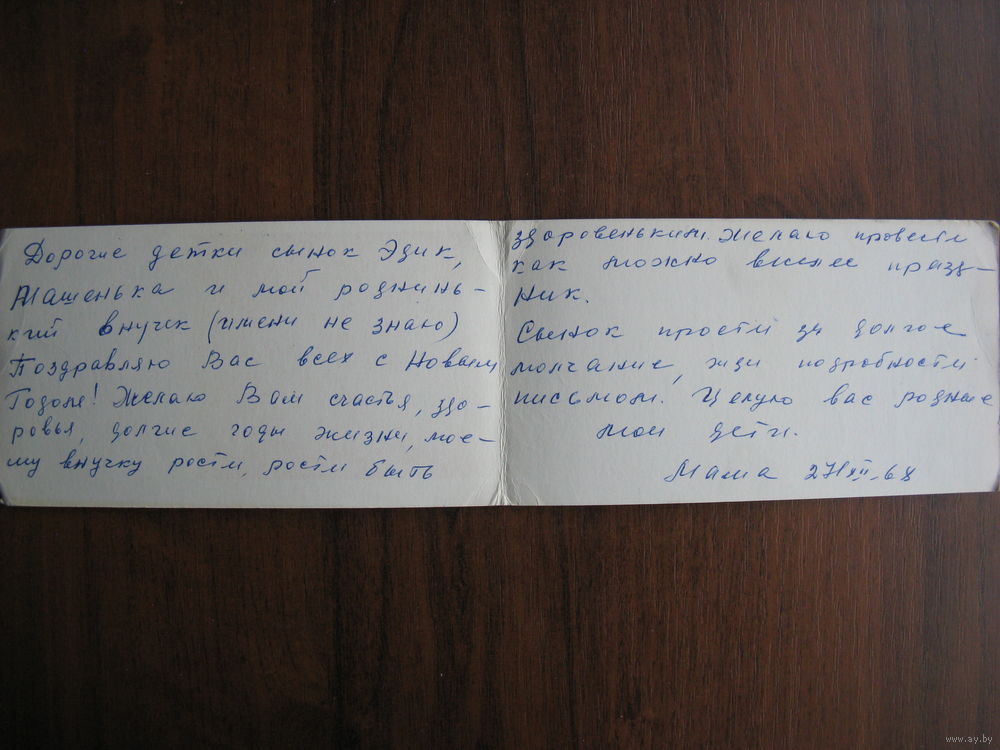 Дорогие детки сынок Эдик,
Машенька и мой роднинь-
кий внучек (имени не знаю)
Поздравляю Вас всех с Новым
Годом! Желаю Вам счастья, здо-
ровья, долгие годы жизни, мое-
му внучку рости, рости быть
здоровеньким. Желаю провести
как можно празд-
ник.
Сынок прости за долгое
молчание, жди подробности
письмом. Целую вас родные
мои дети.
Мама 27/XII-68
www.ay.by